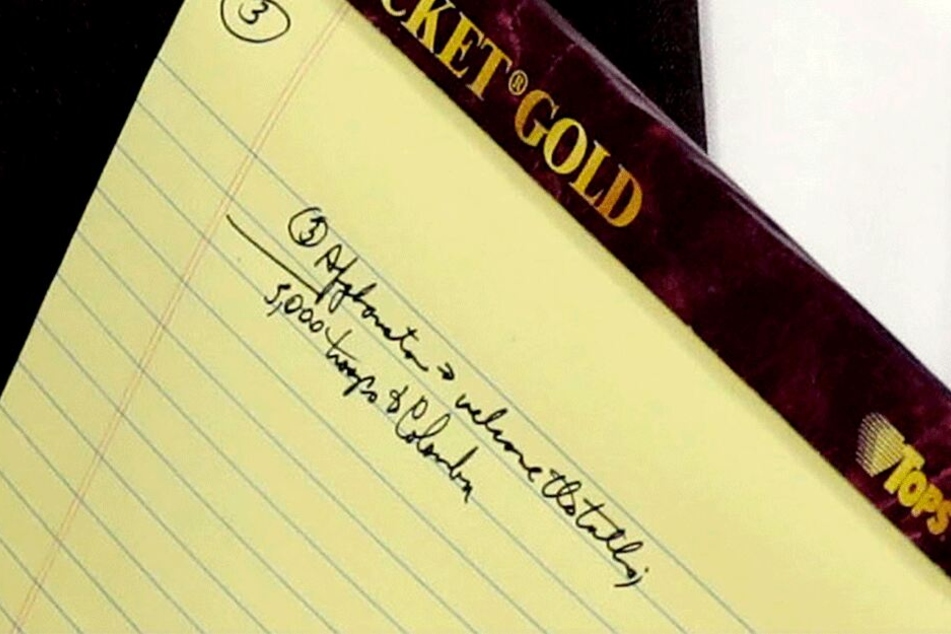 3
CKET® GOLD
③ Afghanistan → welcome the talks;
5,000 troops to Colombia
TOPS